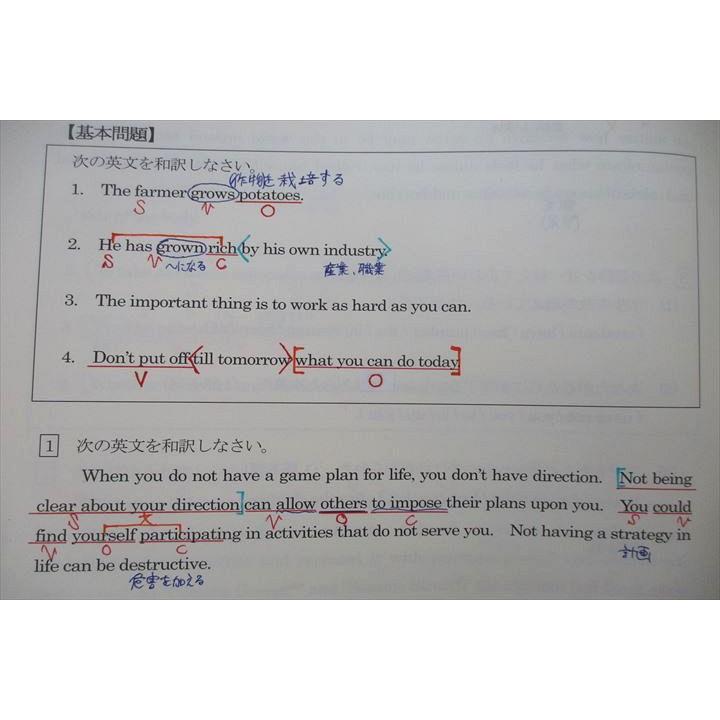 【基本問題】
次の英文を和訳しなさい。
作物を栽培する
1. The farmer grows potatoes.
S V O
2. He has grown rich by his own industry.
S V ~になる C 産業、職業
3. The important thing is to work as hard as you can.
4. Don't put off till tomorrow what you can do today.
V O
1 次の英文を和訳しなさい。
When you do not have a game plan for life, you don't have direction. Not being
clear about your direction can allow others to impose their plans upon you. You could
S V O C S V
find yourself participating in activities that do not serve you. Not having a strategy in
V O C 計画
life can be destructive.
危害を加える